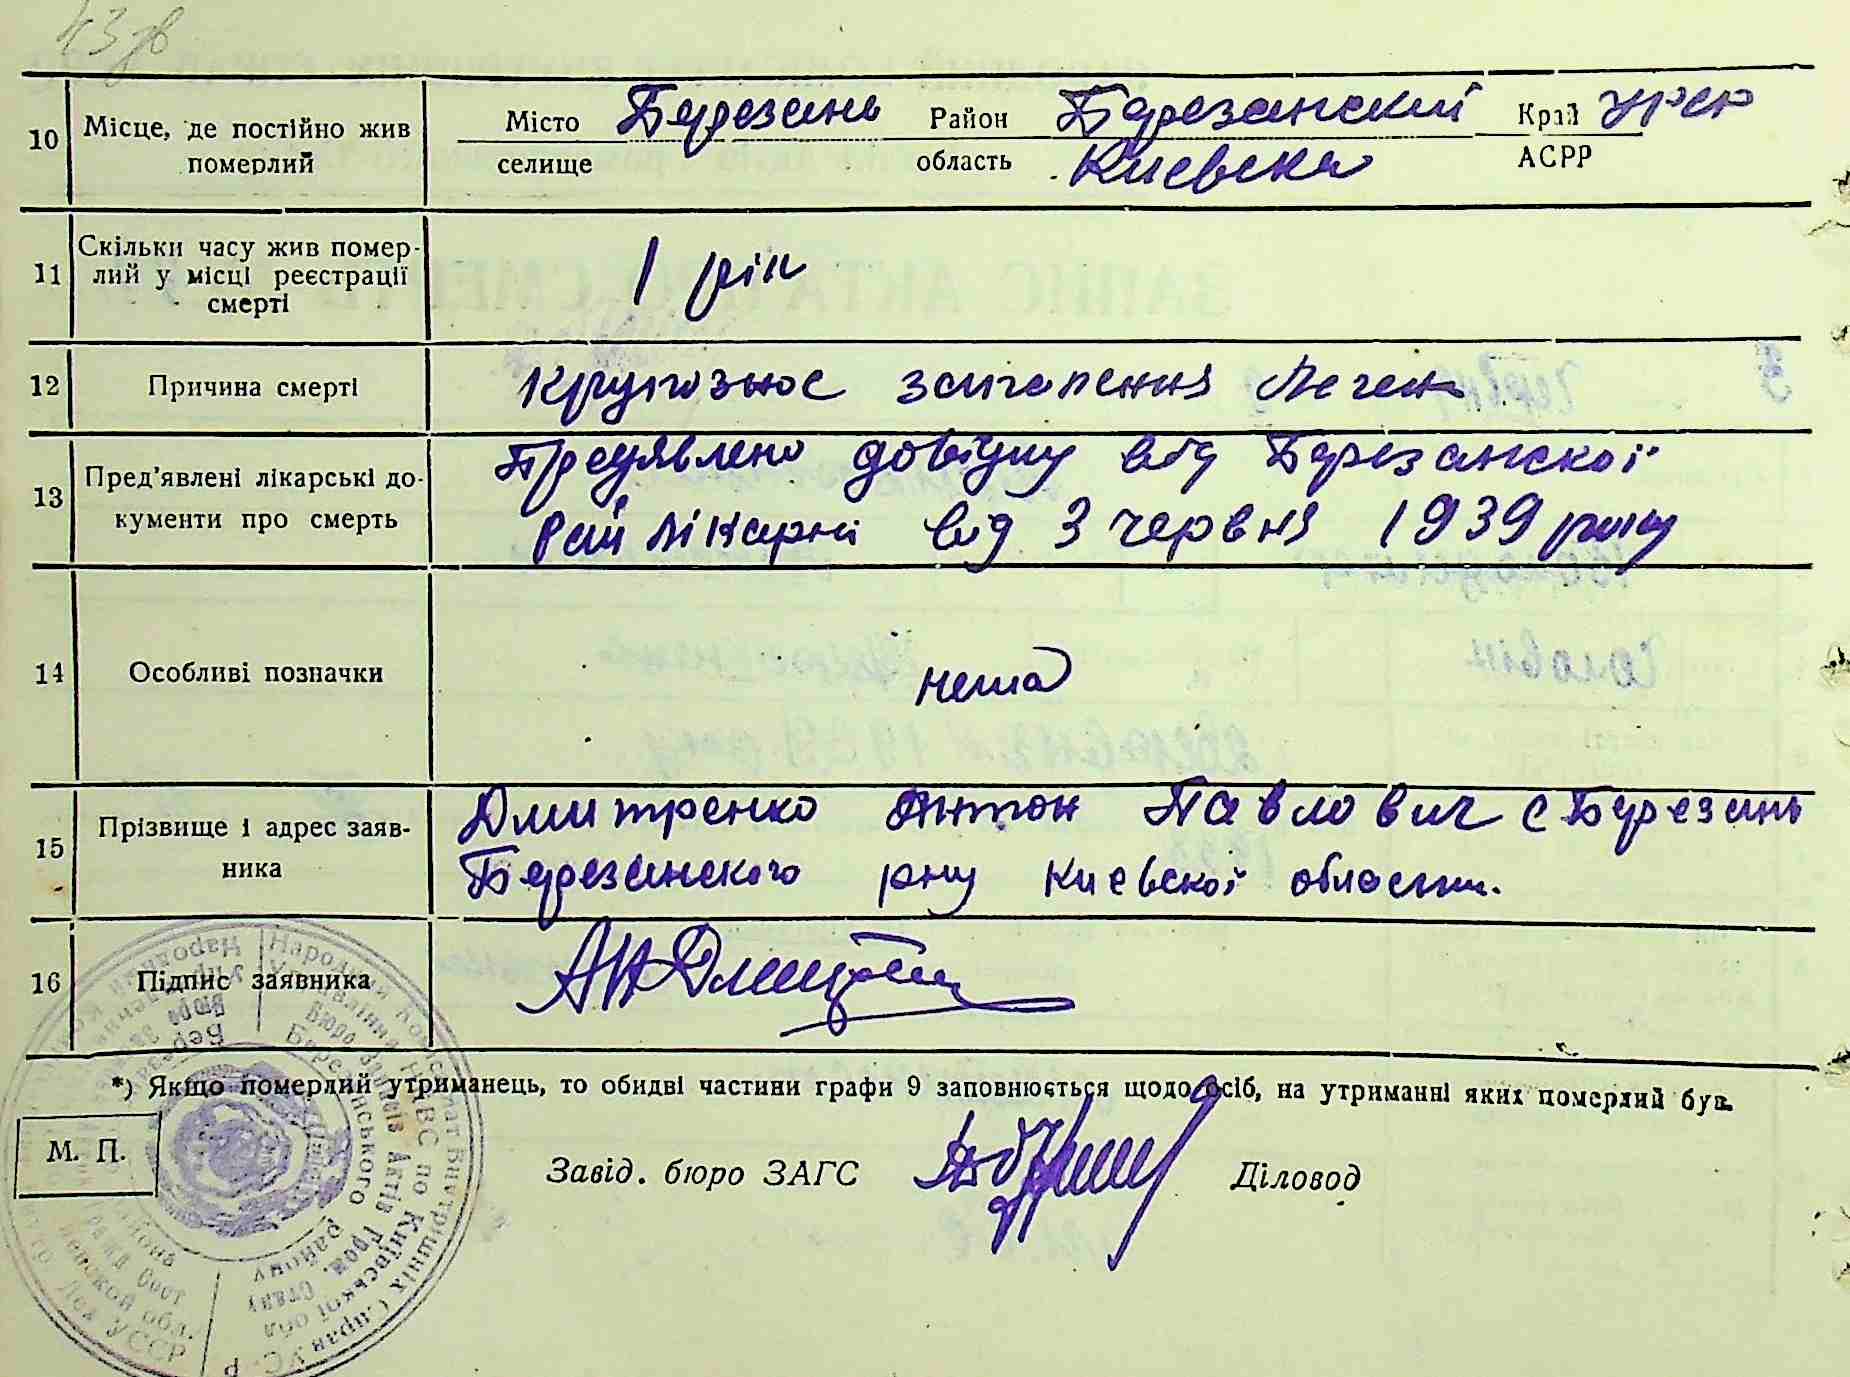 43 зв
10 Місце, де постійно жив померлий
Місто Березань Район Березанский Край УРСР
селище область Киевска АСРР
11 Скільки часу жив помер-
лий у місці реєстрації
смерті
1 рік
12 Причина смерті Крупозное запалення Леген
13 Пред'явлені лікарські до-
кументи про смерть
Предявлено довідку від Березанскої
Рай лікарні від 3 червня 1939 року
14 Особливі позначки нема
15 Прізвище і адрес заяв-
ника
Дмитренко Антон Павлович с Березань
Березанского рну Киевскої області.
16 Підпис заявника
*) Якщо померлий утриманець, то обидві частини графи 9 заповнюється щодо осіб, на утриманні яких померлий був.
М. П.
Завід. бюро ЗАГС Діловод
Народний Комісаріат Внутрішніх Справ УСРР
Управління НКВС по Київській обл
Бюро Записів Актів Гром. Стану
Березанського району